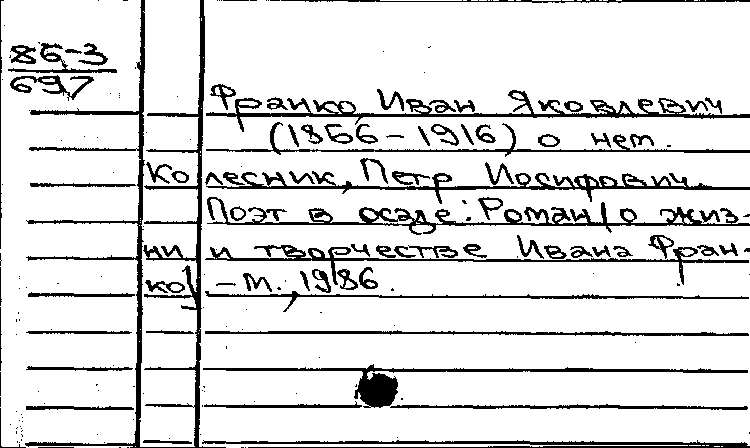 86-3
697
Франко, Иван Яковлевич
(1856-1916) о нем.
Колесник, Петр Иосифович.
Поэт в осаде: Роман /о жиз-
ни и творчестве Ивана Фран-
ко/. - М., 1986.